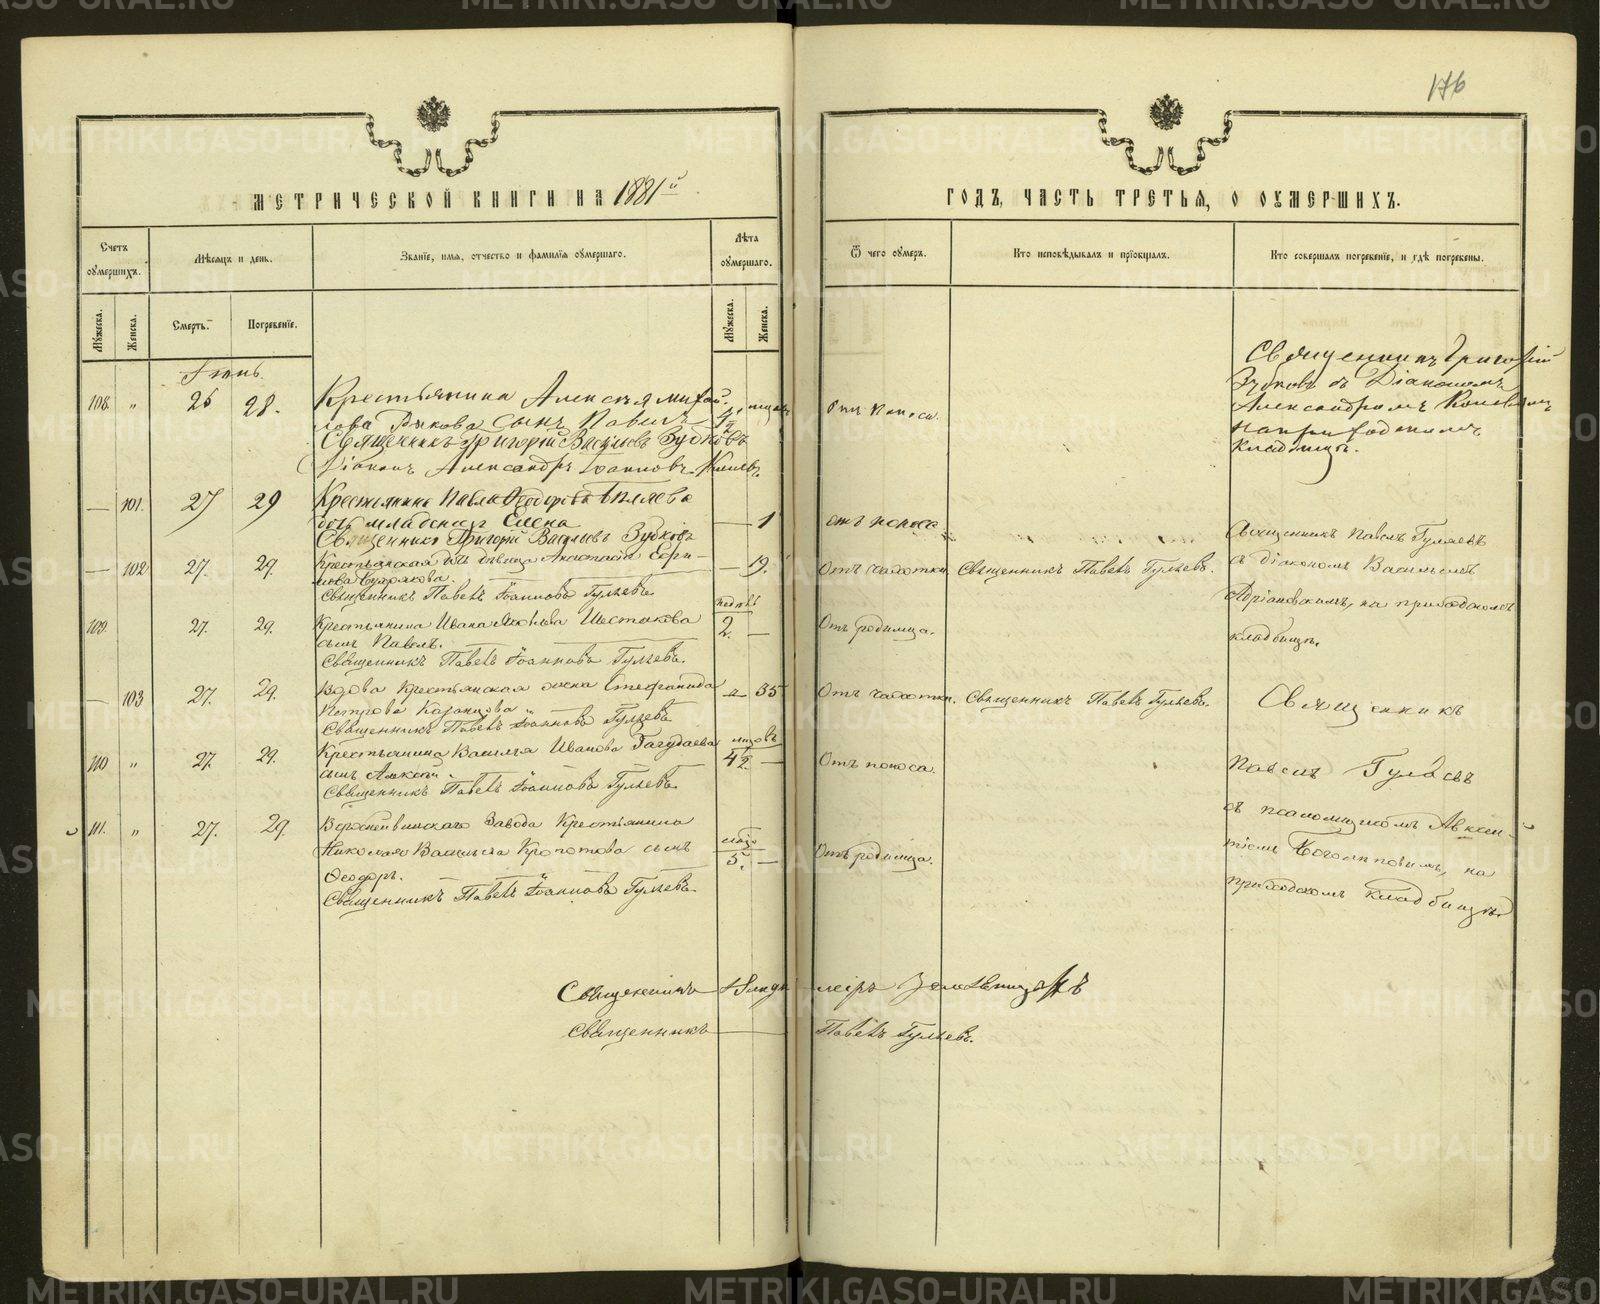 176
МЕТРИЧЕСКОЙ КНИГИ НА 1881й
ГОДЪ, ЧАСТЬ ТРЕТЬЯ, О ОУМЕРШИХЪ.
Счетъ оумершихъ.
Мѣсяцъ и день.
Званіе, имя, отчество и фамилія оумершаго.
Лѣта оумершаго.
Ѿ чего оумеръ.
Кто исповѣдывалъ и пріобщалъ.
Кто совершалъ погребеніе, и гдѣ погребены.
Мужеска.
Женска.
Смерть.
Погребеніе.
Мужеска.
Женска.
108. „ 26 28. Крестьянина Алексѣя Михай-
лова сынъ Павелъ
Священникъ Григорій Васильевъ Зубковъ
Діаконъ Александръ Іоанновъ
Отъ поноса.
Священникъ Григорій
Зубковъ съ Діакономъ
Александромъ
на приходскомъ
кладбищѣ.
— 101. 27 29 Крестьянина Павла Ѳеодорова Бѣляева
дочь младенецъ Елена — 1 отъ поноса
Священникъ Григорій Васильевъ Зубковъ
— 102 27. 29. Крестьянская дѣвица Анастасія
— 19. Отъ чахотки. Священникъ Павелъ Гуляевъ.
Священникъ Павелъ Іоанновъ Гуляевъ.
Священникъ Павелъ Гуляевъ
съ діакономъ Василіемъ
Адріановскимъ, на приходскомъ
кладбищѣ.
109. 27. 29. Крестьянина Ивана Яковлева Шестакова
сынъ Павелъ. недѣль 2. — Отъ родимца.
Священникъ Павелъ Іоанновъ Гуляевъ.
— 103 27. 29. Вдова Крестьянская жена Стефанида
Петрова Казанцова — 35 Отъ чахотки. Священникъ Павелъ Гуляевъ.
Священникъ Павелъ Іоанновъ Гуляевъ
110 „ 27. 29. Крестьянина Василья Иванова
сынъ Алексѣй. 42. — Отъ поноса.
Священникъ Павелъ Іоанновъ Гуляевъ.
111. „ 27. 29. Верхнейвинскаго Завода Крестьянина
Николая Васильева Кропотова сынъ
Ѳеодоръ. 5. — Отъ родимца.
Священникъ Павелъ Іоанновъ Гуляевъ.
Священникъ
Павелъ Гуляевъ
съ псаломщикомъ Авксен-
тіемъ Боголѣповымъ, на
приходскомъ кладбищѣ.
Священникъ
Священникъ Павелъ Гуляевъ.
METRIKI.GASO-URAL.RU